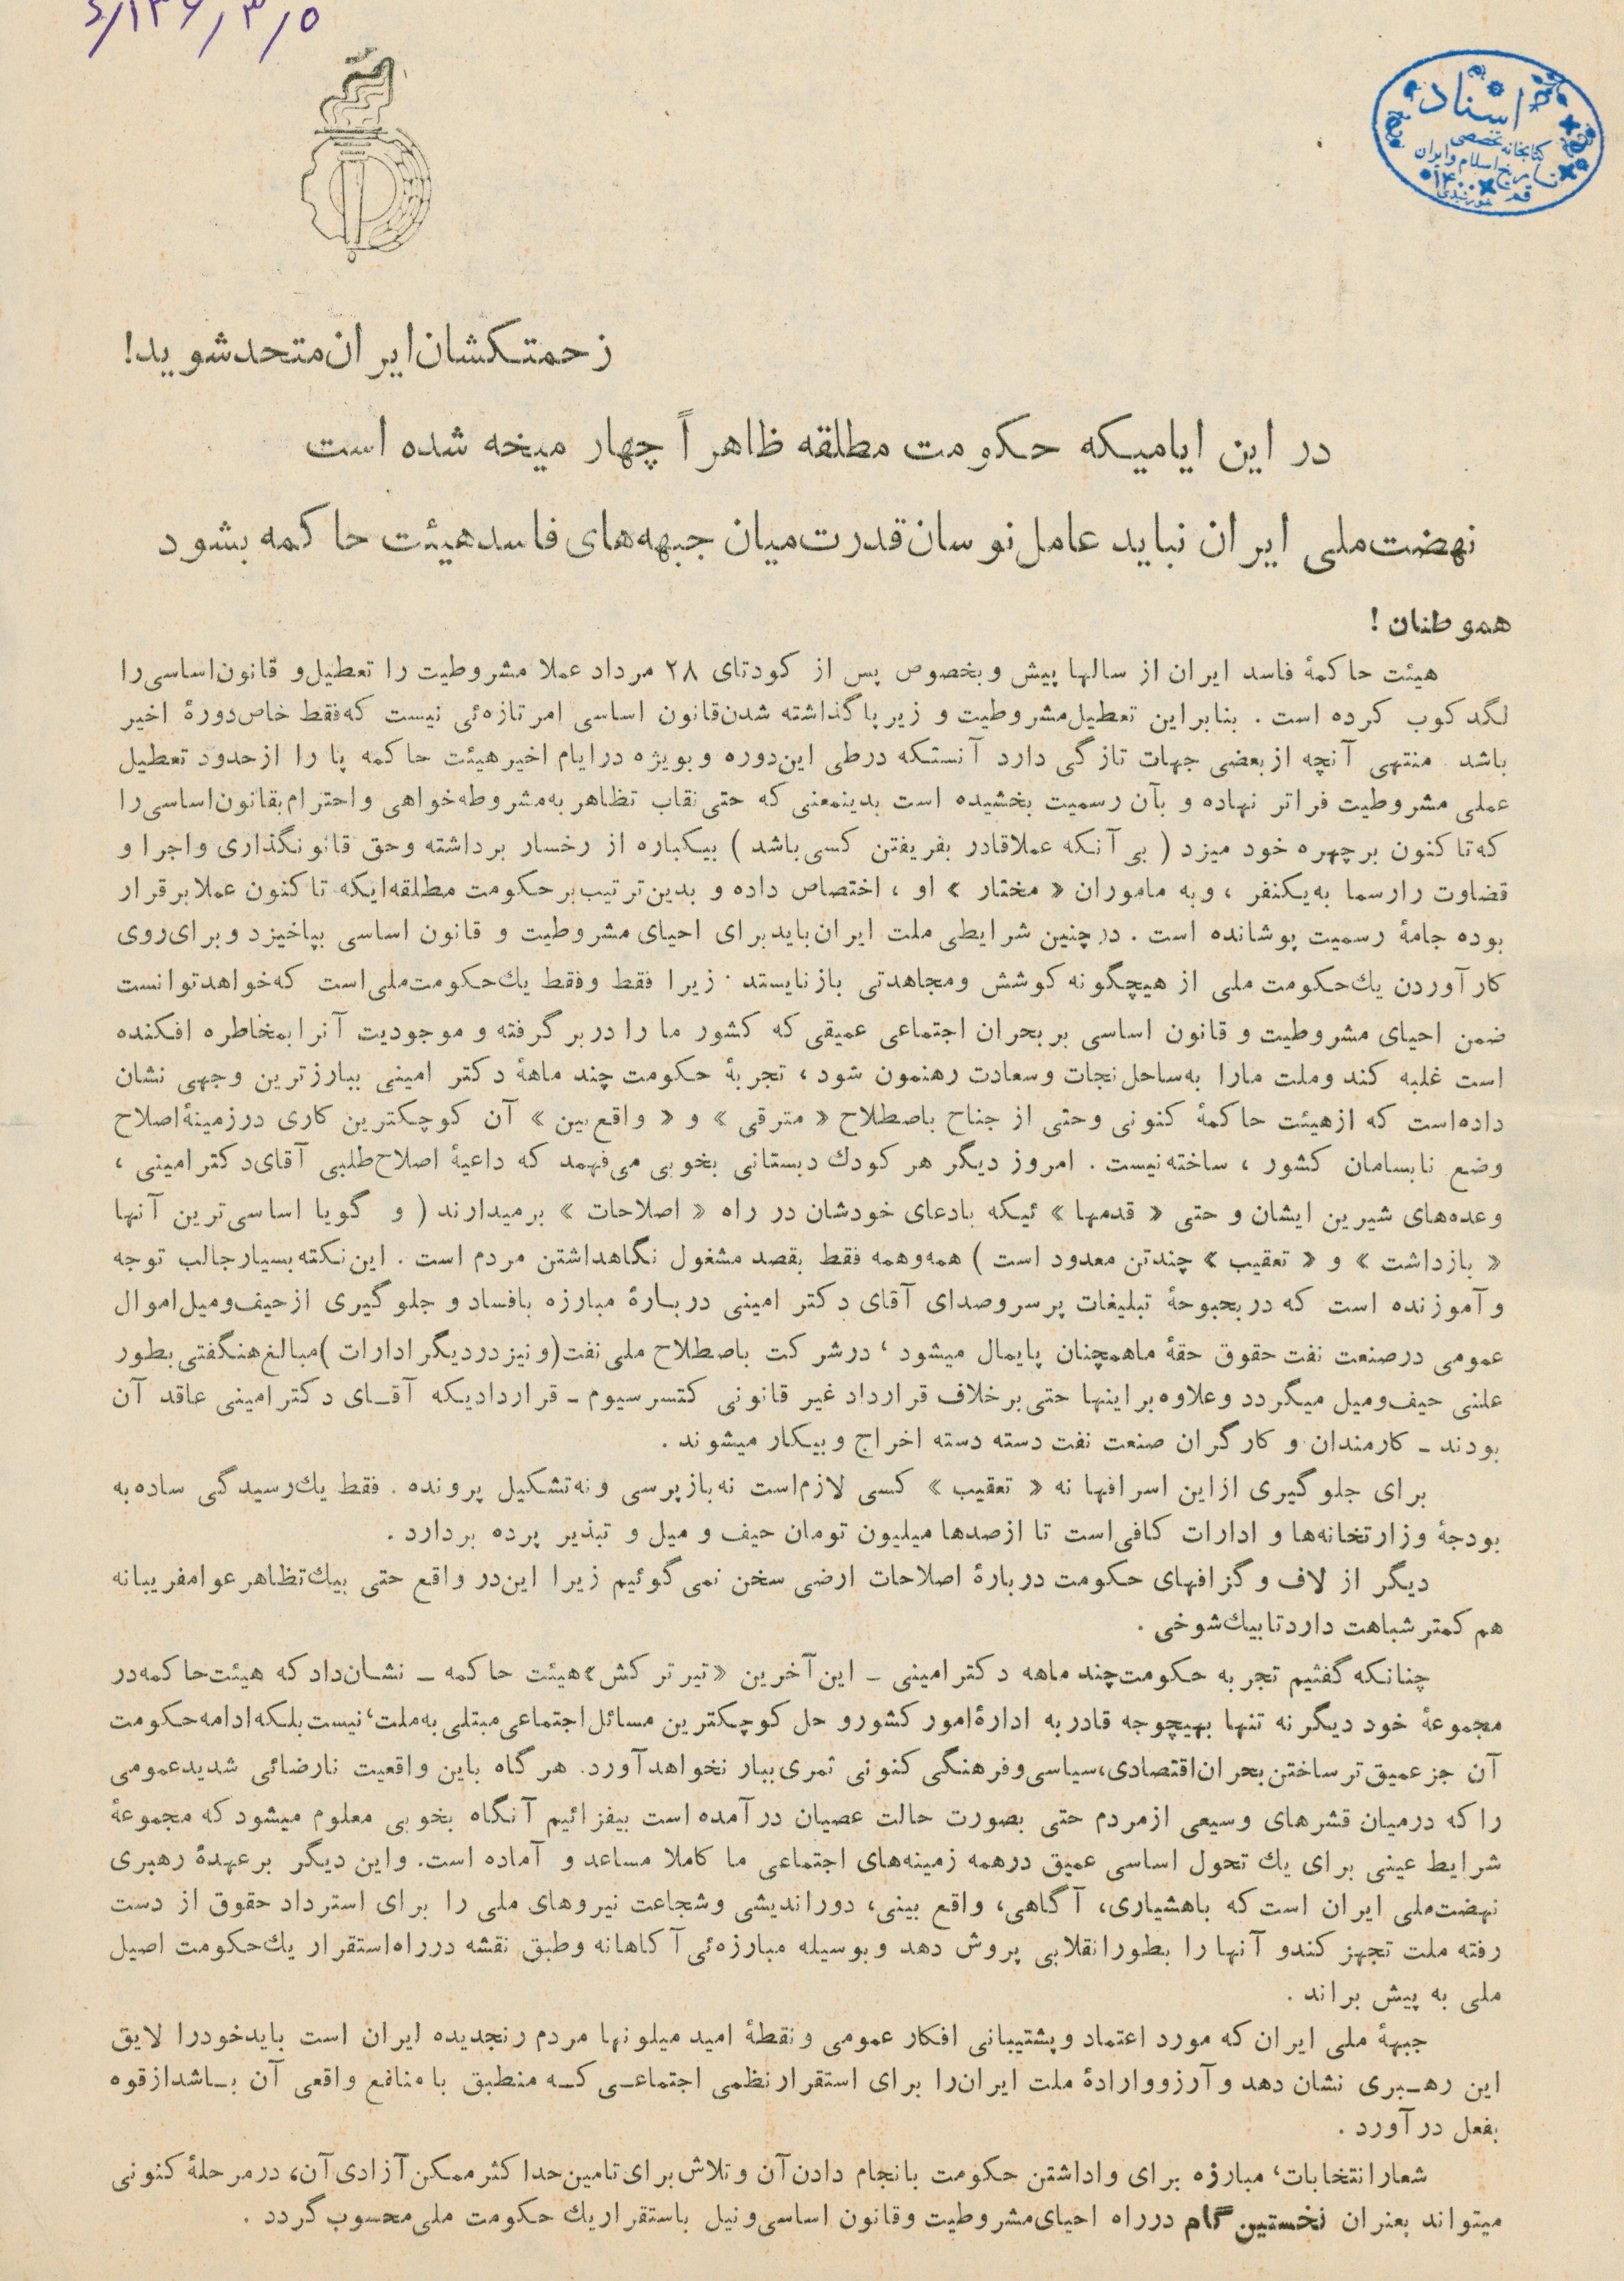 ۵/۳/۱۳۶/د
اسناد
کتابخانه تخصصی
تاریخ اسلام و ایران
قم
زحمتکشان ایران متحد شوید!
در این ایامیکه حکومت مطلقه ظاهراً چهار میخه شده است
نهضت ملی ایران نباید عامل نوسان قدرت میان جبهه‌های فاسد هیئت حاکمه بشود
هموطنان !
هیئت حاکمهٔ فاسد ایران از سالها پیش و بخصوص پس از کودتای ۲۸ مرداد عملا مشروطیت را تعطیل و قانون اساسی را
لگدکوب کرده است . بنابراین تعطیل مشروطیت و زیر پا گذاشته شدن قانون اساسی امر تازه‌ئی نیست که فقط خاص دورهٔ اخیر
باشد . منتهی آنچه از بعضی جهات تازگی دارد آنستکه در طی این دوره و بویژه در ایام اخیر هیئت حاکمه پا را از حدود تعطیل
عملی مشروطیت فراتر نهاده و بآن رسمیت بخشیده است بدینمعنی که حتی نقاب تظاهر به مشروطه‌خواهی و احترام بقانون اساسی را
که تاکنون بر چهره خود میزد ( بی آنکه عملا قادر بفریفتن کسی باشد ) بیکباره از رخسار برداشته وحق قانونگذاری واجرا و
قضاوت را رسما به یکنفر ، و به ماموران « مختار » او ، اختصاص داده و بدین ترتیب بر حکومت مطلقه‌ایکه تاکنون عملا برقرار
بوده جامهٔ رسمیت پوشانده است . در چنین شرایطی ملت ایران باید برای احیای مشروطیت و قانون اساسی بپاخیزد و برای روی
کار آوردن یك حکومت ملی از هیچگونه کوشش ومجاهدتی باز نایستد . زیرا فقط وفقط یك حکومت ملی است که خواهد توانست
ضمن احیای مشروطیت و قانون اساسی بر بحران اجتماعی عمیقی که کشور ما را در بر گرفته و موجودیت آنرا بمخاطره افکنده
است غلبه کند وملت مارا به ساحل نجات وسعادت رهنمون شود ، تجربهٔ حکومت چند ماههٔ دکتر امینی ببارزترین وجهی نشان
داده است که از هیئت حاکمهٔ کنونی وحتی از جناح باصطلاح « مترقی » و « واقع بین » آن کوچکترین کاری در زمینهٔ اصلاح
وضع نابسامان کشور ، ساخته نیست . امروز دیگر هر کودك دبستانی بخوبی می‌فهمد که داعیهٔ اصلاح‌طلبی آقای دکتر امینی ،
وعده‌های شیرین ایشان و حتی « قدمها » ئیکه بادعای خودشان در راه « اصلاحات » برمیدارند ( و گویا اساسی‌ترین آنها
« بازداشت » و « تعقیب » چندتن معدود است ) همه وهمه فقط بقصد مشغول نگاهداشتن مردم است . این نکته بسیار جالب توجه
و آموزنده است که در بحبوحهٔ تبلیغات پر سروصدای آقای دکتر امینی دربارهٔ مبارزه بافساد و جلوگیری از حیف ومیل اموال
عمومی در صنعت نفت حقوق حقهٔ ماهمچنان پایمال میشود ، در شرکت باصطلاح ملی نفت (و نیز در دیگر ادارات ) مبالغ هنگفتی بطور
علنی حیف ومیل میگردد وعلاوه بر اینها حتی بر خلاف قرارداد غیر قانونی کنسرسیوم ـ قراردادیکه آقـای دکتر امینی عاقد آن
بودند ـ کارمندان و کارگران صنعت نفت دسته دسته اخراج و بیکار میشوند .
برای جلوگیری از این اسرافها نه « تعقیب » کسی لازم است نه بازپرسی و نه تشکیل پرونده . فقط یك رسیدگی ساده به
بودجهٔ وزارتخانه‌ها و ادارات کافی است تا از صدها میلیون تومان حیف و میل و تبذیر پرده بردارد .
دیگر از لاف و گزافهای حکومت دربارهٔ اصلاحات ارضی سخن نمی گوئیم زیرا این در واقع حتی بیك تظاهر عوامفریبانه
هم کمتر شباهت دارد تا بیك شوخی .
چنانکه گفتیم تجربه حکومت چند ماهه دکتر امینی ـ این آخرین «تیر ترکش» هیئت حاکمه ـ نشـان داد که هیئت حاکمه در
مجموعهٔ خود دیگر نه تنها بهیچوجه قادر به ادارهٔ امور کشورو حل کوچکترین مسائل اجتماعی مبتلی به ملت، نیست بلکه ادامه حکومت
آن جز عمیق‌تر ساختن بحران اقتصادی، سیاسی وفرهنگی کنونی ثمری ببار نخواهد آورد. هر گاه باین واقعیت نارضائی شدید عمومی
را که در میان قشرهای وسیعی از مردم حتی بصورت حالت عصیان در آمده است بیفزائیم آنگاه بخوبی معلوم میشود که مجموعهٔ
شرایط عینی برای یك تحول اساسی عمیق در همه زمینه‌های اجتماعی ما کاملا مساعد و آماده است. واین دیگر بر عهدهٔ رهبری
نهضت ملی ایران است که باهشیاری، آگاهی، واقع بینی، دوراندیشی وشجاعت نیروهای ملی را برای استرداد حقوق از دست
رفته ملت تجهز کندو آنها را بطور انقلابی پروش دهد و بوسیله مبارزه‌ئی آکاهانه وطبق نقشه در راه استقرار یك حکومت اصیل
ملی به پیش براند .
جبههٔ ملی ایران که مورد اعتماد و پشتیبانی افکار عمومی و نقطهٔ امید میلونها مردم رنجدیده ایران است باید خودرا لایق
این رهـبری نشان دهد و آرزووارادهٔ ملت ایران را برای استقرار نظمی اجتماعـی کـه منطبق با منافع واقعی آن بـاشد از قوه
بفعل در آورد .
شعار انتخابات، مبارزه برای واداشتن حکومت بانجام دادن آن و تلاش برای تامین حداکثر ممکن آزادی آن، در مرحلهٔ کنونی
میتواند بعنران نخستین گام در راه احیای مشروطیت وقانون اساسی و نیل باستقرار یك حکومت ملی محسوب گردد .